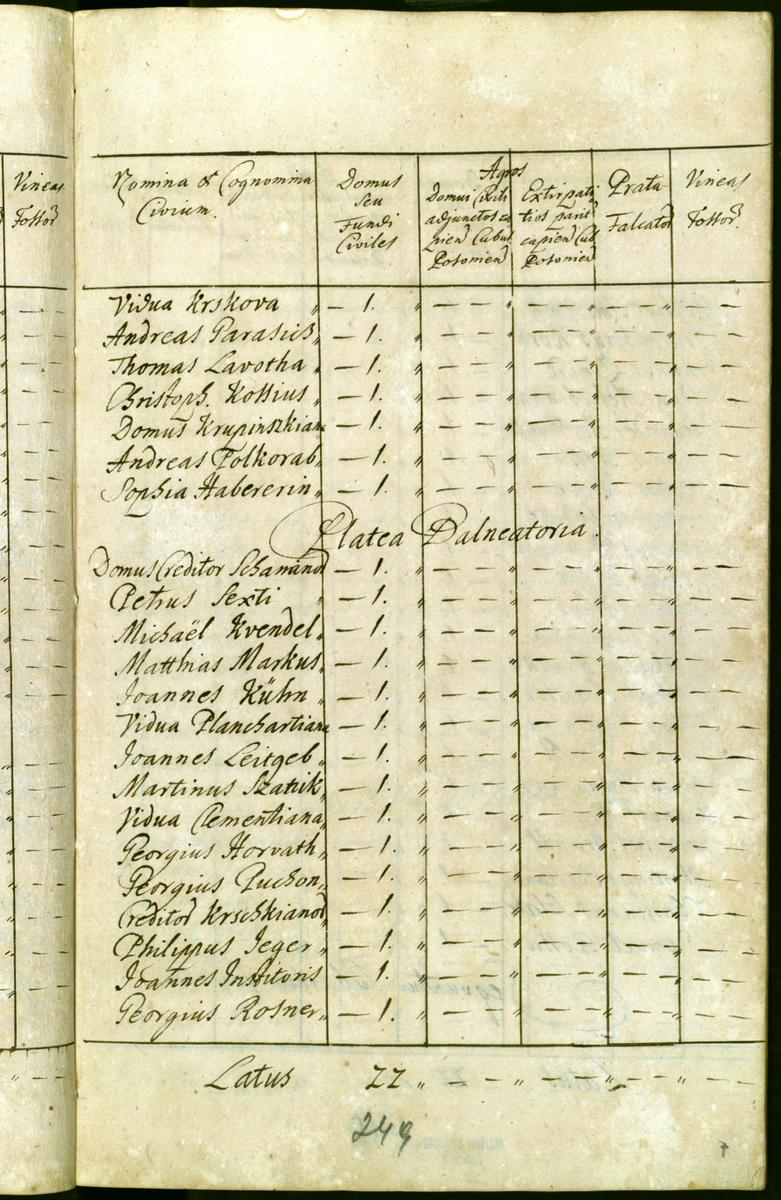 Vineas
Fossor
Nomina & Cognomina
Civium.
Domus
Seu
Fundi
Civiles
Agros
Domui Civili
adjunctos ca
pien Cubul
Posonien
Extirpati
tios parit
capien Cub
Posonien
Prata
Falcator
Vineas
Fossor
Vidua Krskova „ — 1. „ — — „ — — „ — — „ — —
Andreas Parasics „ — 1. „ — — „ — — „ — — „ — —
Thomas Lavotha „ — 1. „ — — „ — — „ — — „ — —
Christoph. Kossius „ — 1. „ — — „ — — „ — — „ — —
Domus Krupinszkiana — 1. „ — — „ — — „ — — „ — —
Andreas Polkorab „ — 1. „ — — „ — — „ — — „ — —
Sophia Habererin „ — 1. „ — — „ — — „ — — „ — —
Platea Balneatoria.
Domus Creditor — 1. „ — — „ — — „ — — „ — —
Petrus Sexti „ — 1. „ — — „ — — „ — — „ — —
Michaël Kvendel „ — 1. „ — — „ — — „ — — „ — —
Matthias Markus „ — 1. „ — — „ — — „ — — „ — —
Joannes Kühn „ — 1. „ — — „ — — „ — — „ — —
Vidua Planchartiana — 1. „ — — „ — — „ — — „ — —
Joannes Leitgeb „ — 1. „ — — „ — — „ — — „ — —
Martinus Szatnik „ — 1. „ — — „ — — „ — — „ — —
Vidua Clementiana „ — 1. „ — — „ — — „ — — „ — —
Georgius Horvath „ — 1. „ — — „ — — „ — — „ — —
Georgius Puchon „ — 1. „ — — „ — — „ — — „ — —
Creditor Krschkianor — 1. „ — — „ — — „ — — „ — —
Philippus Jeger „ — 1. „ — — „ — — „ — — „ — —
Joannes Institoris — 1. „ — — „ — — „ — — „ — —
Georgius Rosner „ — 1. „ — — „ — — „ — — „ — —
Latus 22 „ — — „ — — „ — — „ — —
249